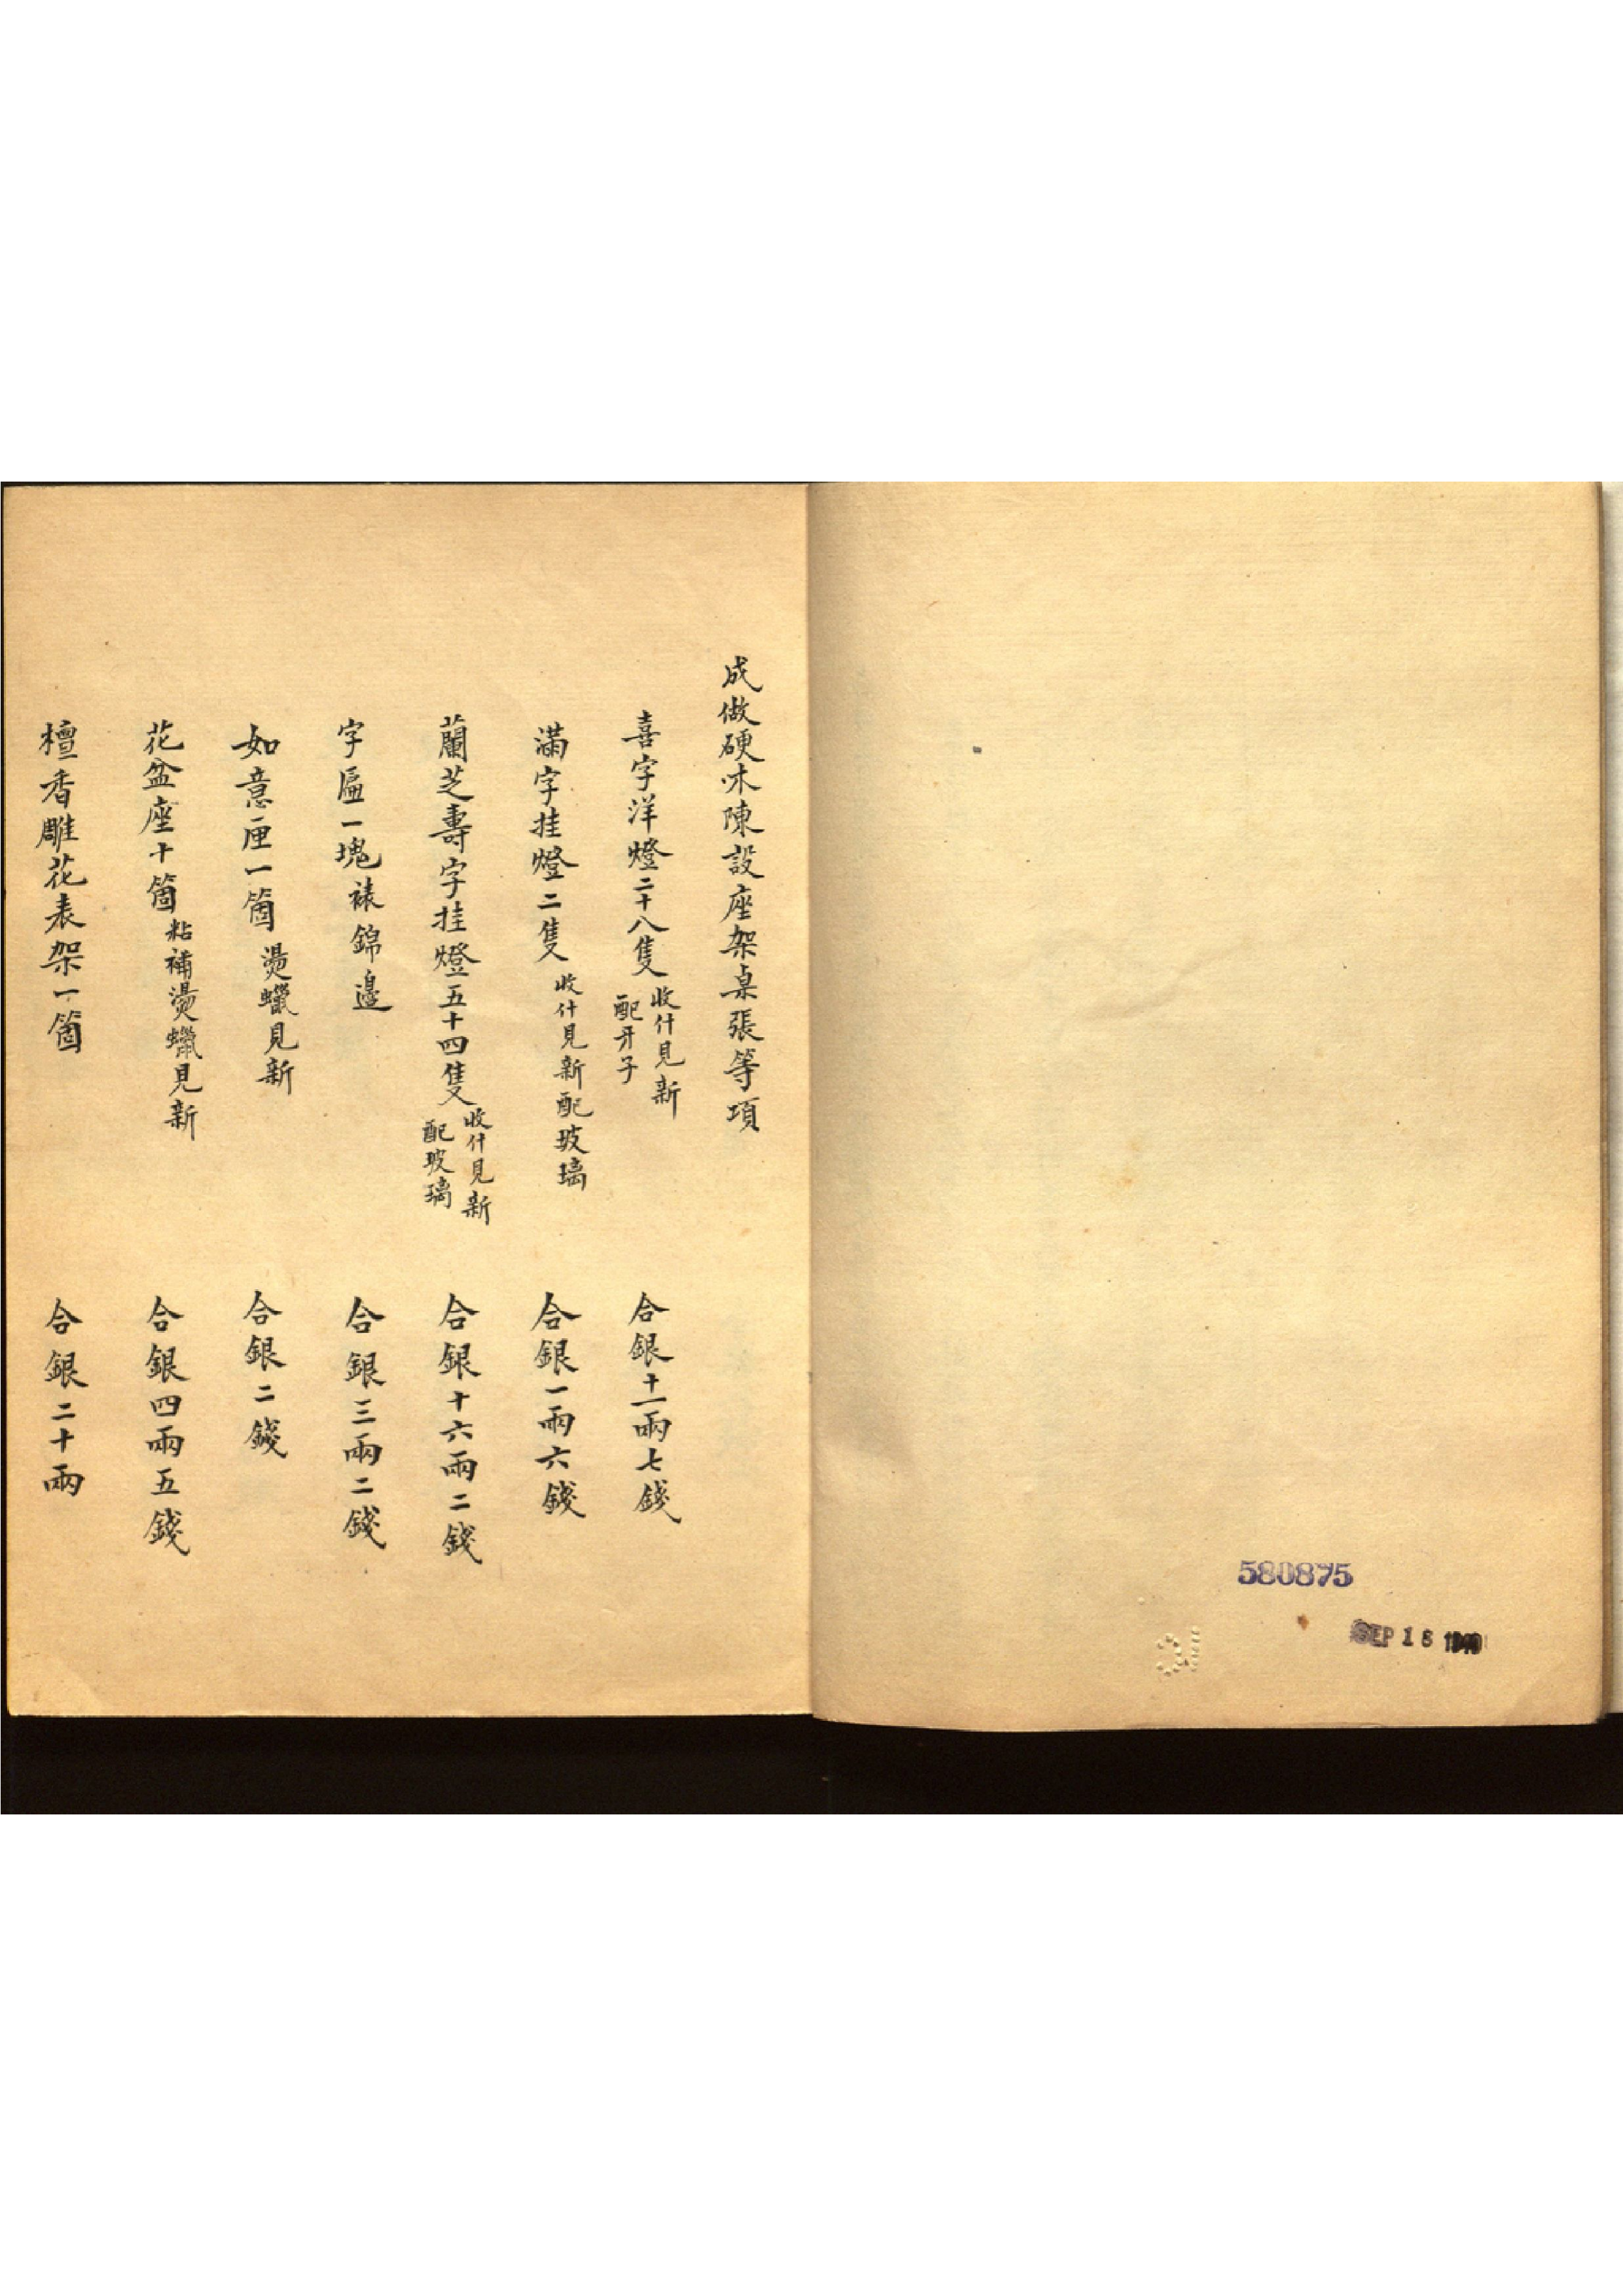 成做硬木陳設座架桌張等項
喜字洋燈二十八隻 收什見新 配牙子 合銀十一兩七錢
滿字挂燈二隻 收什見新配玻璃 合銀一兩六錢
蘭芝壽字挂燈五十四隻 收什見新 配玻璃 合銀十六兩二錢
字匾一塊裱錦邊 合銀三兩二錢
如意匣一箇 燙蠟見新 合銀二錢
花盆座十箇 粘補燙蠟見新 合銀四兩五錢
檀香雕花表架一箇 合銀二十兩
580875
SEP 18 1940